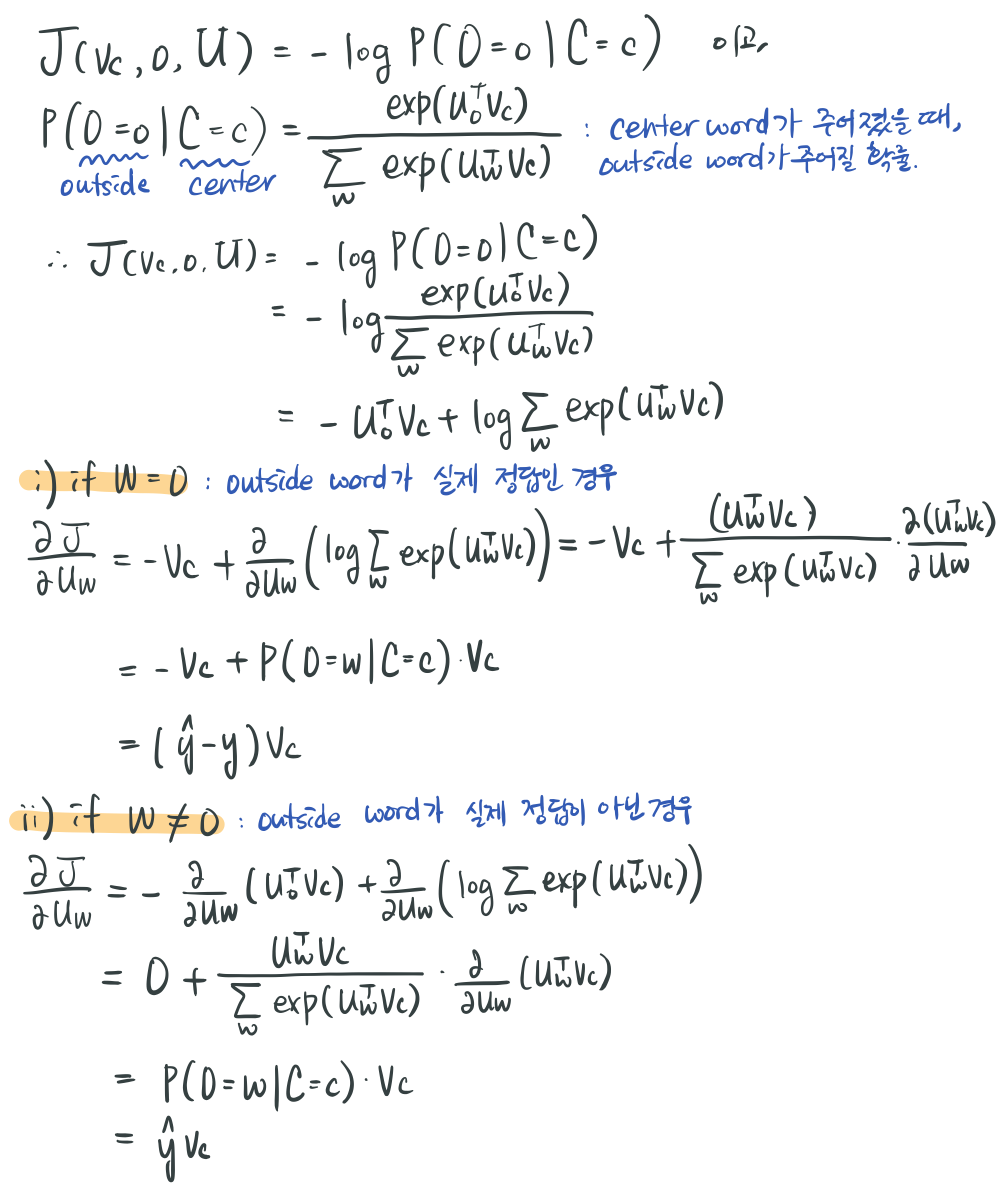 J(Vc, o, U) = - log P(O=o | C=c) 이고,
P(O=o | C=c) = exp(u_o^T Vc) / Σ_w exp(u_w^T Vc) : center word가 주어졌을 때,
outside center outside word가 주어질 확률.
∴ J(Vc, o, U) = - log P(O=o | C=c)
= - log exp(u_o^T Vc) / Σ_w exp(u_w^T Vc)
= - u_o^T Vc + log Σ_w exp(u_w^T Vc)
i) if W = O : outside word가 실제 정답인 경우
∂J/∂u_w = - Vc + ∂/∂u_w (log Σ_w exp(u_w^T Vc)) = - Vc + (u_w^T Vc) / Σ_w exp(u_w^T Vc) · ∂(u_w^T Vc)/∂u_w
= - Vc + P(O=w | C=c) · Vc
= (ŷ - y) Vc
ii) if W ≠ O : outside word가 실제 정답이 아닌 경우
∂J/∂u_w = - ∂/∂u_w (u_o^T Vc) + ∂/∂u_w (log Σ_w exp(u_w^T Vc))
= 0 + u_w^T Vc / Σ_w exp(u_w^T Vc) · ∂/∂u_w (u_w^T Vc)
= P(O=w | C=c) · Vc
= ŷ Vc